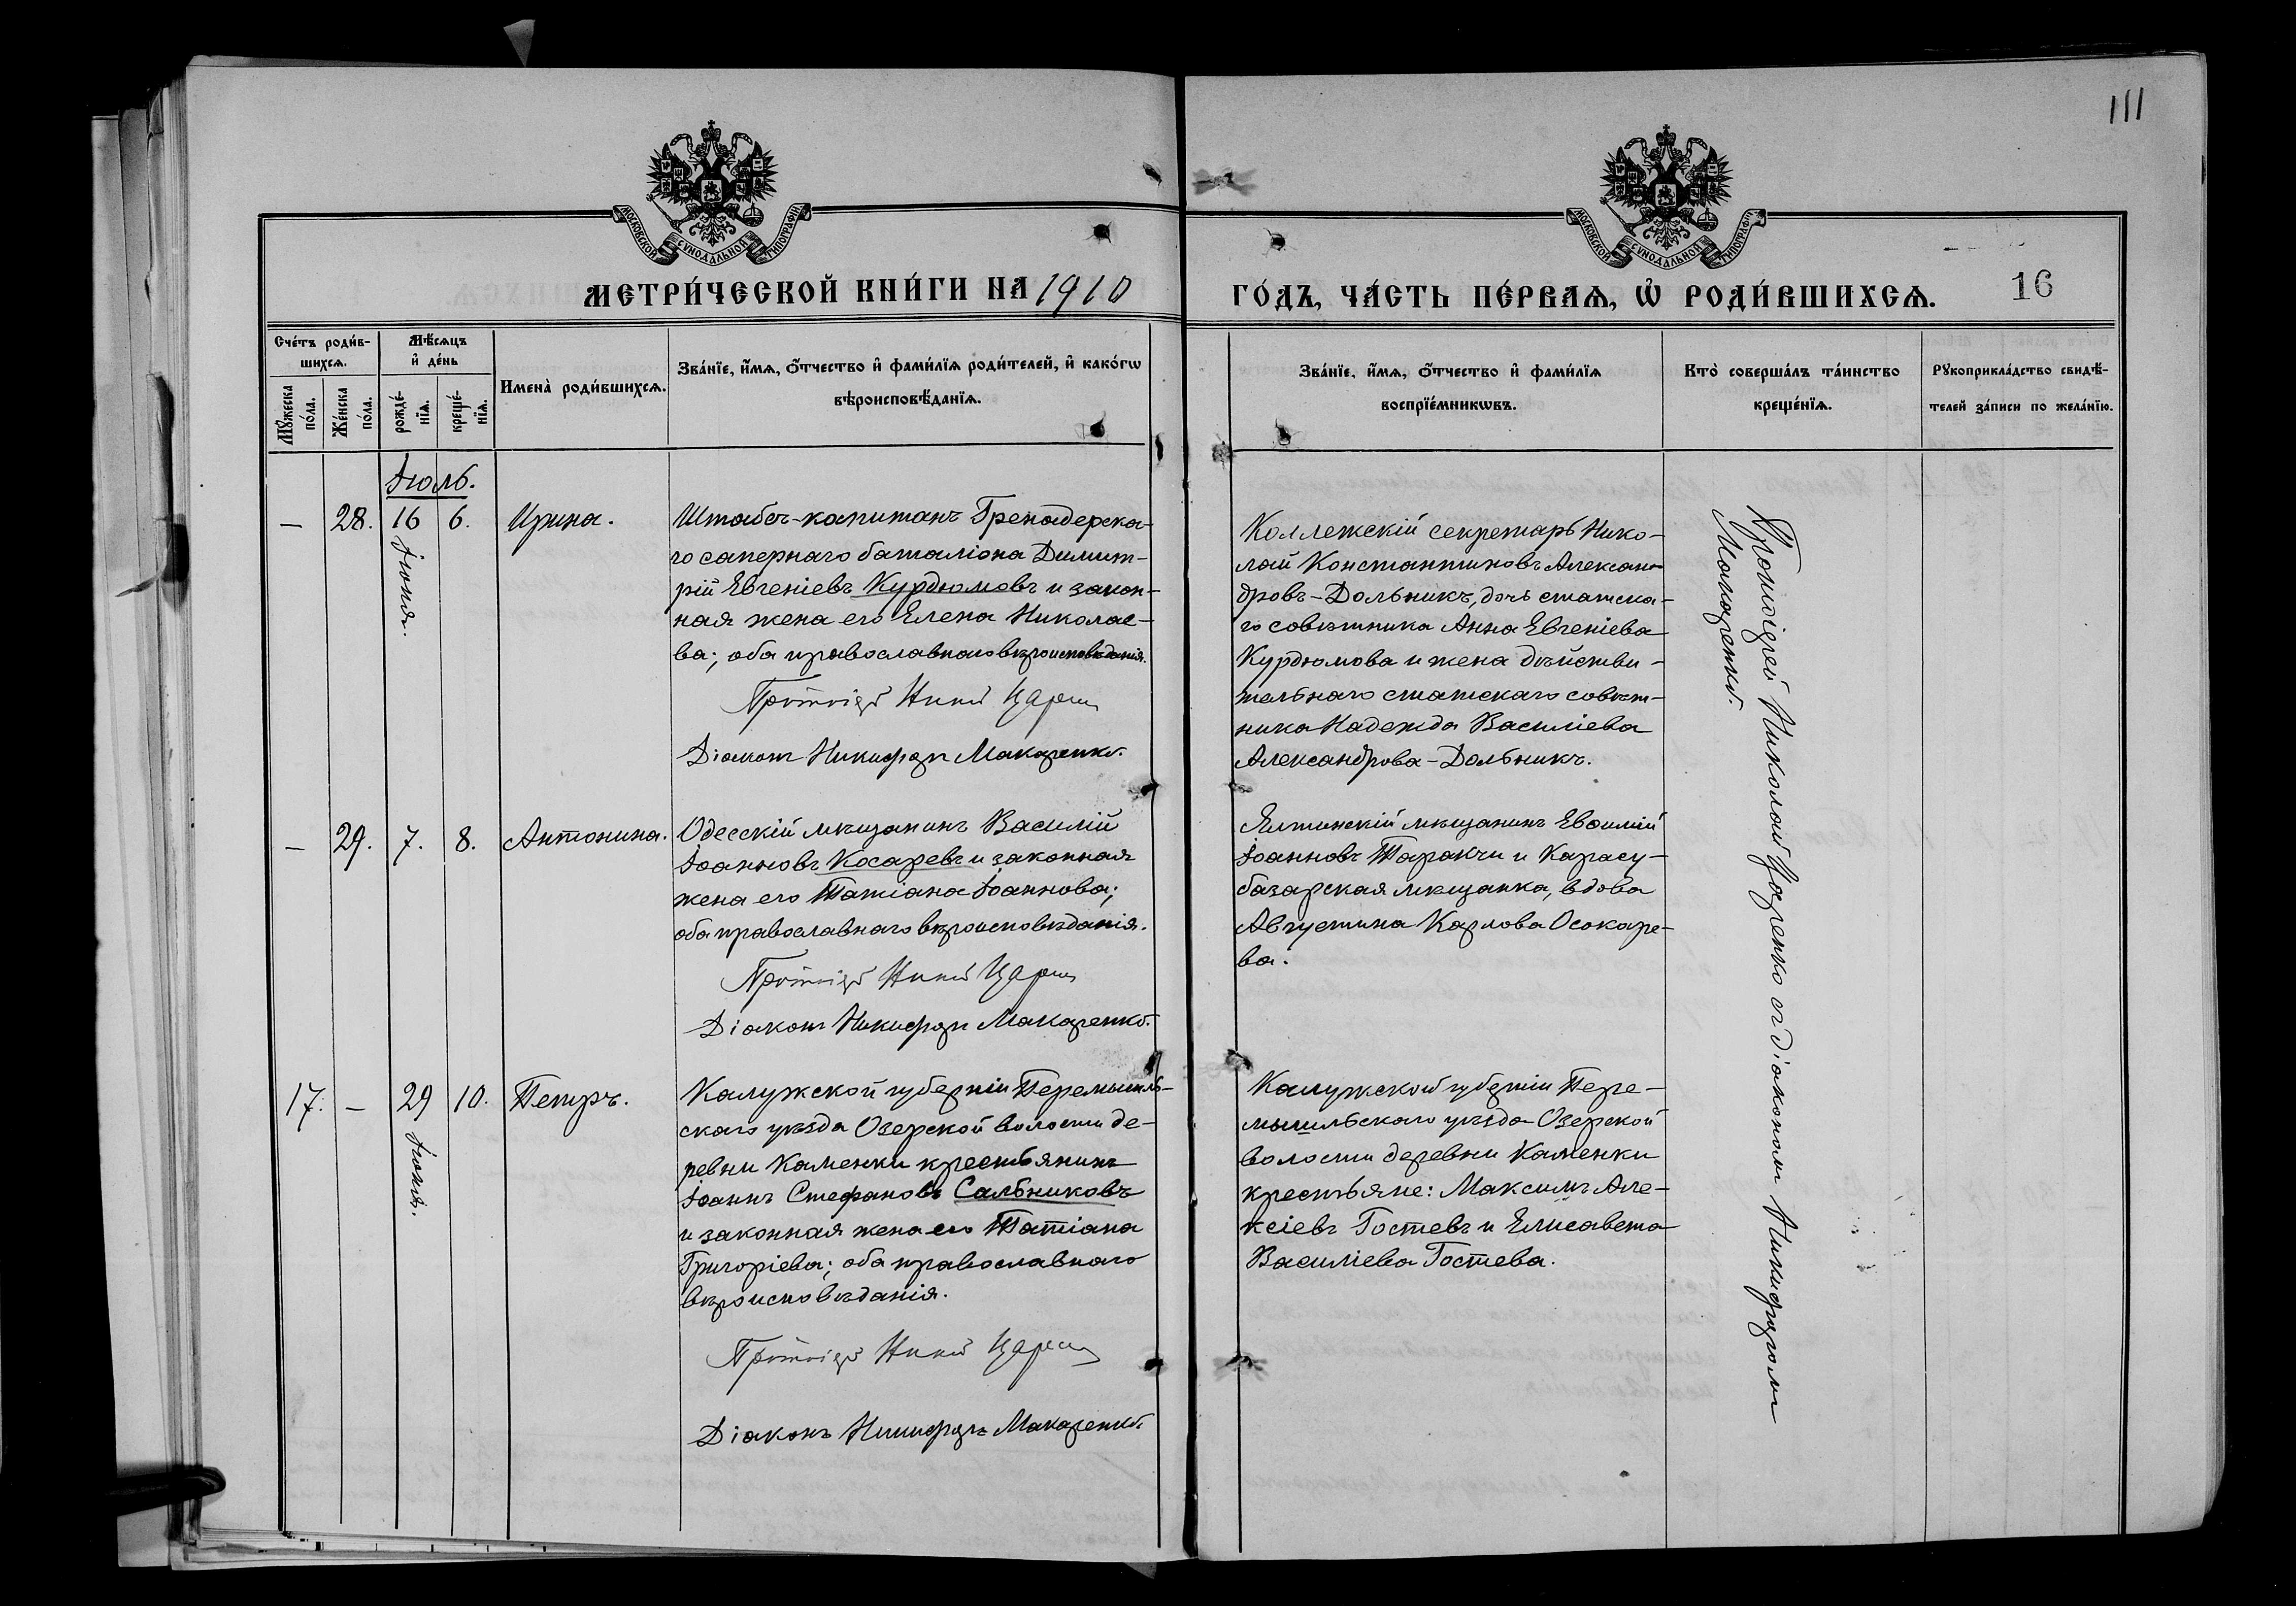 111
МОСКОВСКОЙ СѴНОДАЛЬНОЙ ТИПОГРАФІИ
МОСКОВСКОЙ СѴНОДАЛЬНОЙ ТИПОГРАФІИ
МЕТРИ́ЧЕСКОЙ КНИ́ГИ НА 1910
ГО́ДЪ, ЧА́СТЬ ПЕ́РВАѦ, Ѡ҆ РОДИ́ВШИХСѦ.
16
Сче́тъ роди́в-
шихсѧ.
Мꙋ́жеска по́ла.
Же́нска по́ла.
Мѣ́сяцъ
и҆ де́нь
рожде́-
нїѧ.
креще́-
нїѧ.
Имена̀ роди́вшихсѧ.
Зва́нїе, и҆́мѧ, ѻ҆́тчество и҆ фами́лїѧ роди́телей, и҆ како́гѡ
вѣроисповѣ́данїѧ.
Зва́нїе, и҆́мѧ, ѻ҆́тчество и҆ фами́лїѧ
воспрїе́мникѡвъ.
Кто̀ соверша́лъ та́инство
креще́нїѧ.
Рꙋкоприкла́дство свидѣ́-
телей за́писи по жела́нїю.
Іюль.
— 28. 16 іюня. 6. Ирина.
Штабсъ-капитанъ Гренадерска-
го сапернаго баталіона Димит-
рій Евгеніевъ Курдюмовъ и закон-
ная жена его Елена Николае-
ва; оба православнаго вѣроисповѣданія.
Діаконъ Никифоръ Макаренко.
Коллежскій секретарь Нико-
лай Константиновъ Алексан-
дровъ-Дольникъ, дочь статска-
го совѣтника Анна Евгеніева
Курдюмова и жена дѣйстви-
тельнаго статскаго совѣт-
ника Надежда Василіева
Александрова-Дольникъ.
Протоіерей Николай Царенко съ діакономъ Никифоромъ
Макаренко.
— 29. 7. 8. Антонина.
Одесскій мѣщанинъ Василій
Іоанновъ Косаревъ и законная
жена его Татіана Іоаннова;
оба православнаго вѣроисповѣданія.
Діаконъ Никифоръ Макаренко.
Ялтинскій мѣщанинъ Евѳимій
Іоанновъ Таракчи и Карасу-
базарская мѣщанка, вдова
Августина Карлова Осокаре-
ва.
17. — 29 іюня. 10. Петръ.
Калужской губерніи Перемышль-
скаго уѣзда Озерской волости де-
ревни Каменки крестьянинъ
Іоаннъ Стефановъ Сальниковъ
и законная жена его Татіана
Григоріева; оба православнаго
вѣроисповѣданія.
Діаконъ Никифоръ Макаренко.
Калужской губерніи Пере-
мышльскаго уѣзда Озерской
волости деревни Каменки
крестьяне: Максимъ Але-
ксіевъ Гостевъ и Елисавета
Василіева Гостева.